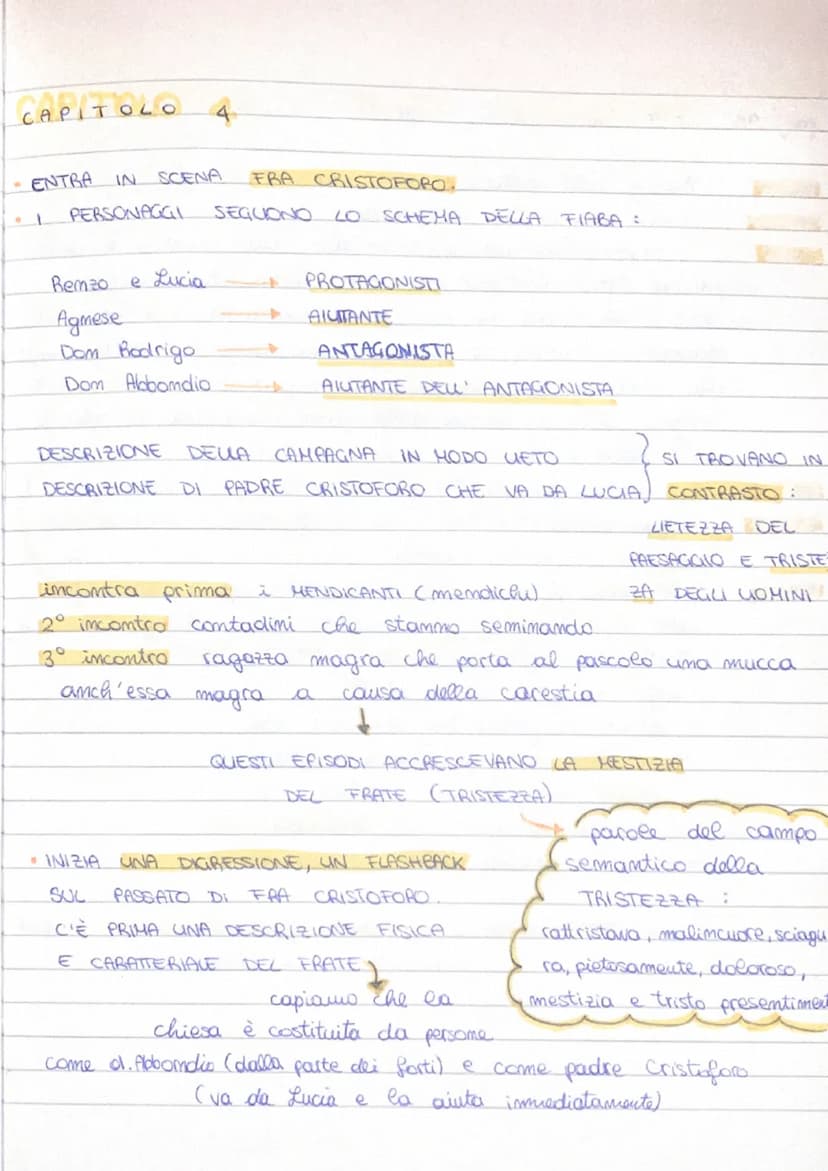 CAPITOLO 4
• ENTRA IN SCENA FRA CRISTOFORO.
• I PERSONAGGI SEGUONO LO SCHEMA DELLA FIABA :
Renzo e Lucia → PROTAGONISTI
Agnese → AIUTANTE
Don Rodrigo → ANTAGONISTA
Don Abbondio → AIUTANTE DELL' ANTAGONISTA
DESCRIZIONE DELLA CAMPAGNA IN MODO LIETO
DESCRIZIONE DI PADRE CRISTOFORO CHE VA DA LUCIA
} SI TROVANO IN
CONTRASTO :
LIETEZZA DEL
PAESAGGIO E TRISTE
ZA DEGLI UOMINI
incontra prima i MENDICANTI (mendichi)
2° incontro contadini che stanno seminando
3° incontro ragazza magra che porta al pascolo una mucca
anch'essa magra a causa della carestia
↓
QUESTI EPISODI ACCRESCEVANO LA MESTIZIA
DEL FRATE (TRISTEZZA)
→ parole del campo
semantico della
TRISTEZZA :
rattristava, malincuore, sciagu
ra, pietosamente, doloroso,
mestizia e tristo presentiment
• INIZIA UNA DIGRESSIONE, UN FLASHBACK
SUL PASSATO DI FRA CRISTOFORO.
C'È PRIMA UNA DESCRIZIONE FISICA
E CARATTERIALE DEL FRATE
capiamo che la
chiesa è costituita da persone
come d. Abbondio (dalla parte dei forti) e come padre Cristoforo
(va da Lucia e la aiuta immediatamente)